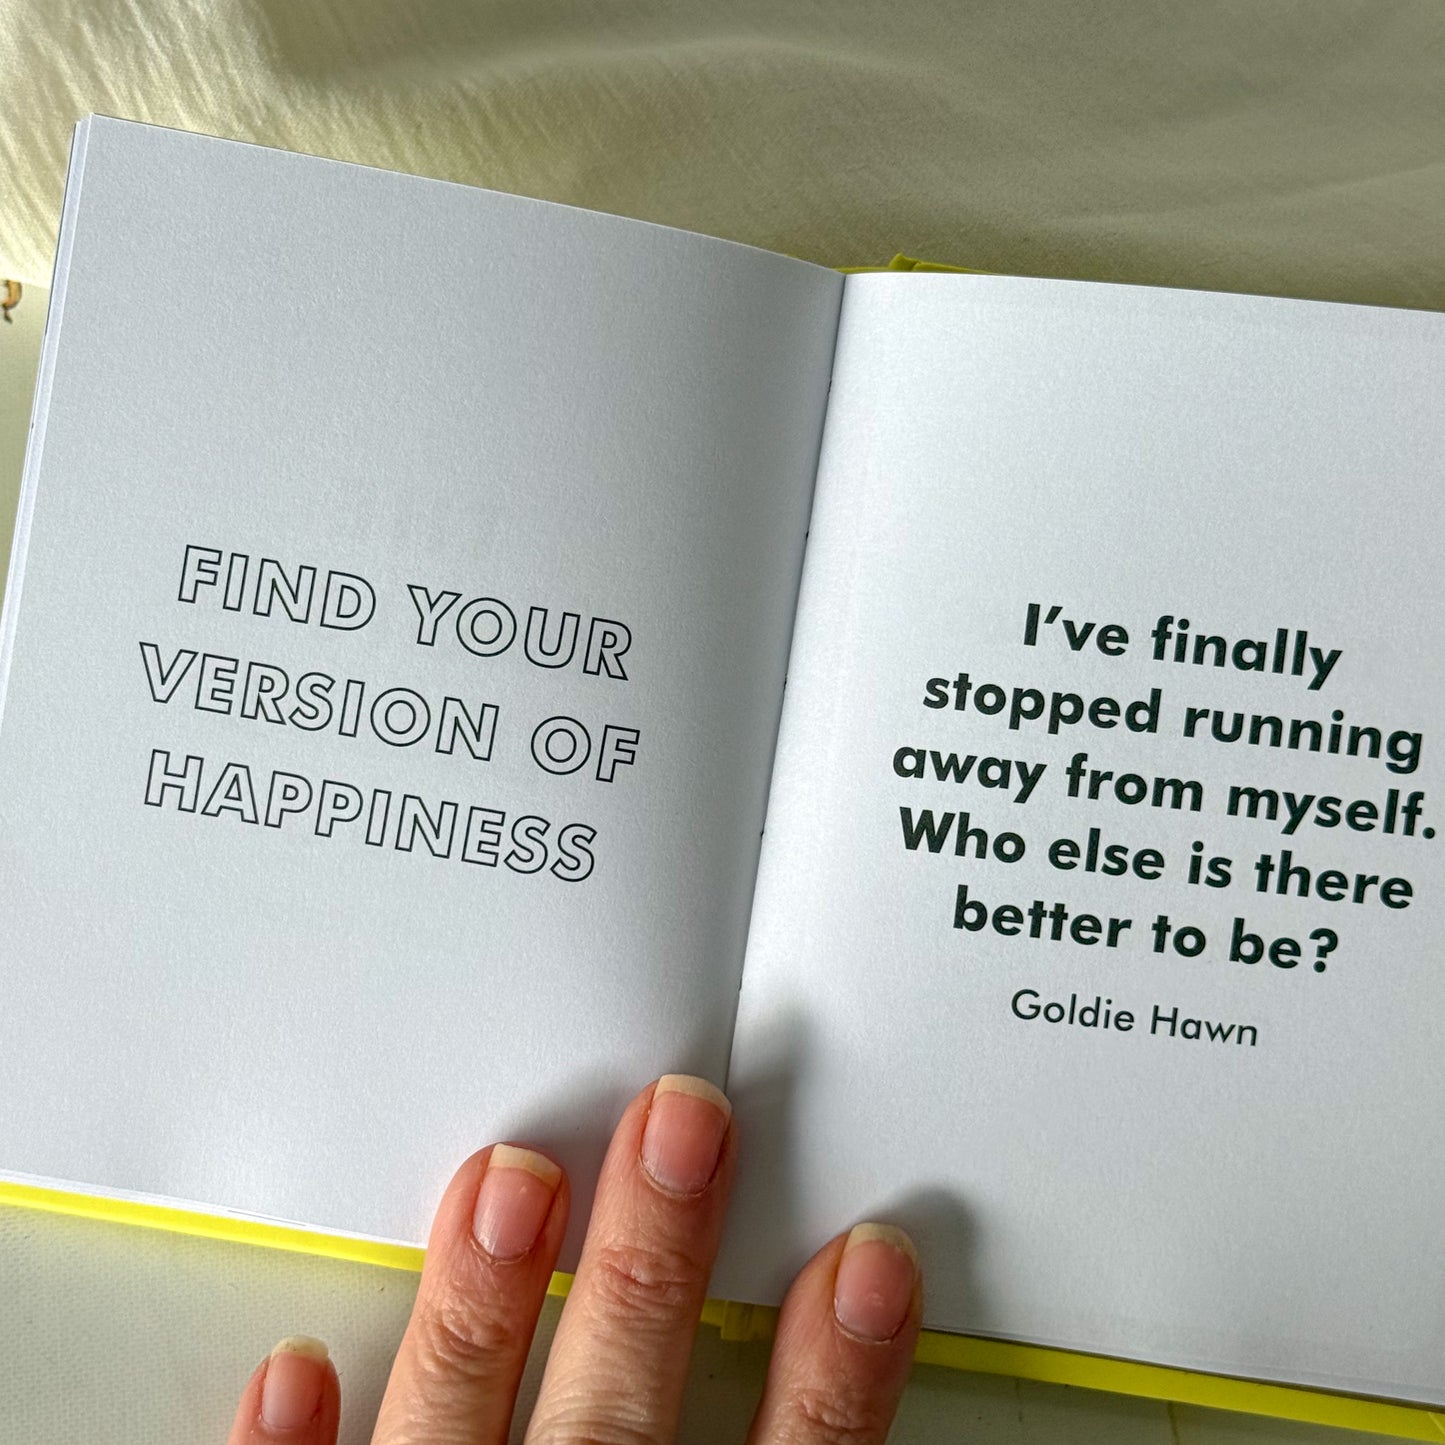 FIND YOUR
VERSION OF
HAPPINESS
I’ve finally
stopped running
away from myself.
Who else is there
better to be?
Goldie Hawn